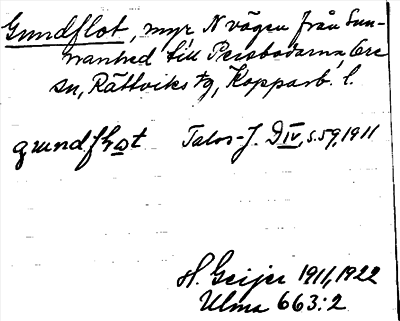 Gundflot, myr N vägen från Sun-
nanhed till Prisbodarna, Ore
sn, Rättviks tg, Kopparb. l.
grundflot Talos-J. D IV, s. 59, 1911
H. Geijer 1911, 1922
Ulma 663:2